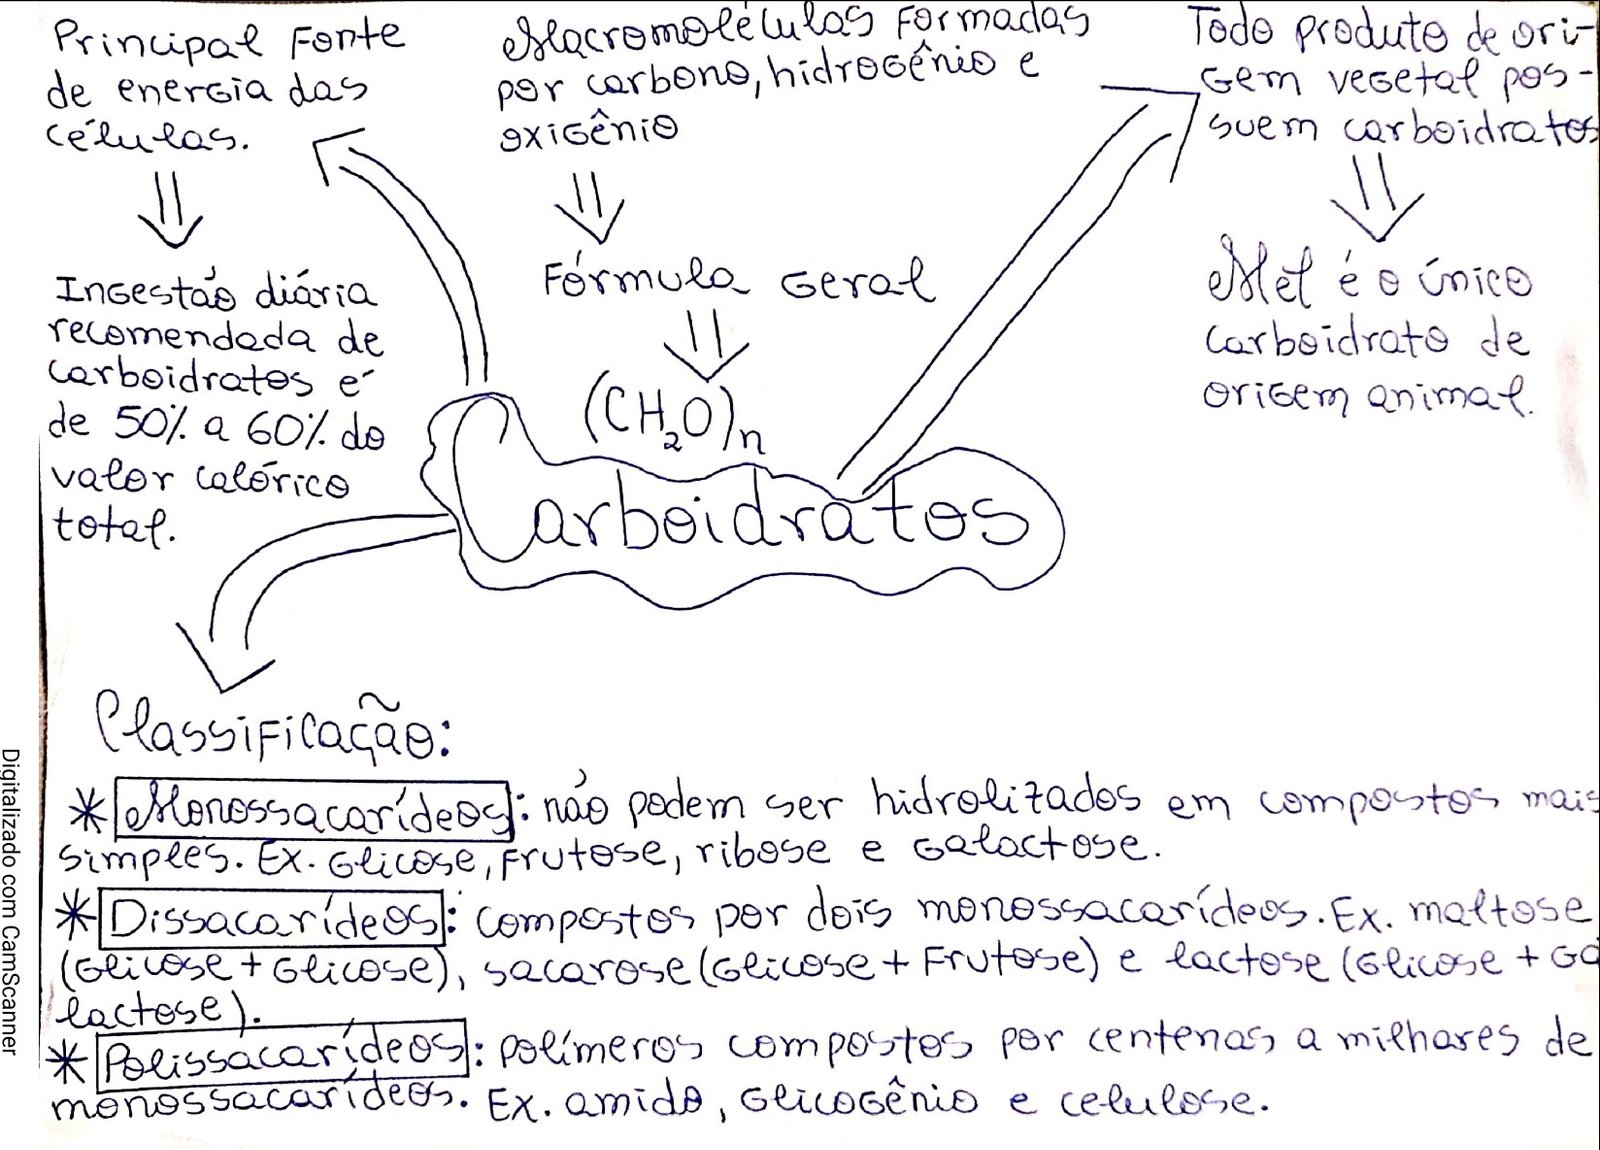 Principal Fonte
de energia das
células.
Ingestão diária
recomendada de
carboidratos é
de 50% a 60% do
valor calórico
total.
Macromoléculas Formadas
por carbono, hidrogênio e
oxigênio
Fórmula Geral
(CH₂O)n
Todo produto de ori-
gem vegetal pos-
suem carboidratos
Mel é o único
carboidrato de
origem animal.
Carboidratos
Classificação:
* Monossacarídeos: não podem ser hidrolizados em compostos mais
simples. Ex. Glicose, Frutose, ribose e Galactose.
* Dissacarídeos: compostos por dois monossacarídeos. Ex. maltose
(Glicose + Glicose), sacarose (Glicose + Frutose) e lactose (Glicose + Ga
lactose).
* Polissacarídeos: polímeros compostos por centenas a milhares de
monossacarídeos. Ex. amido, Glicogênio e celulose.
Digitalizado com CamScanner